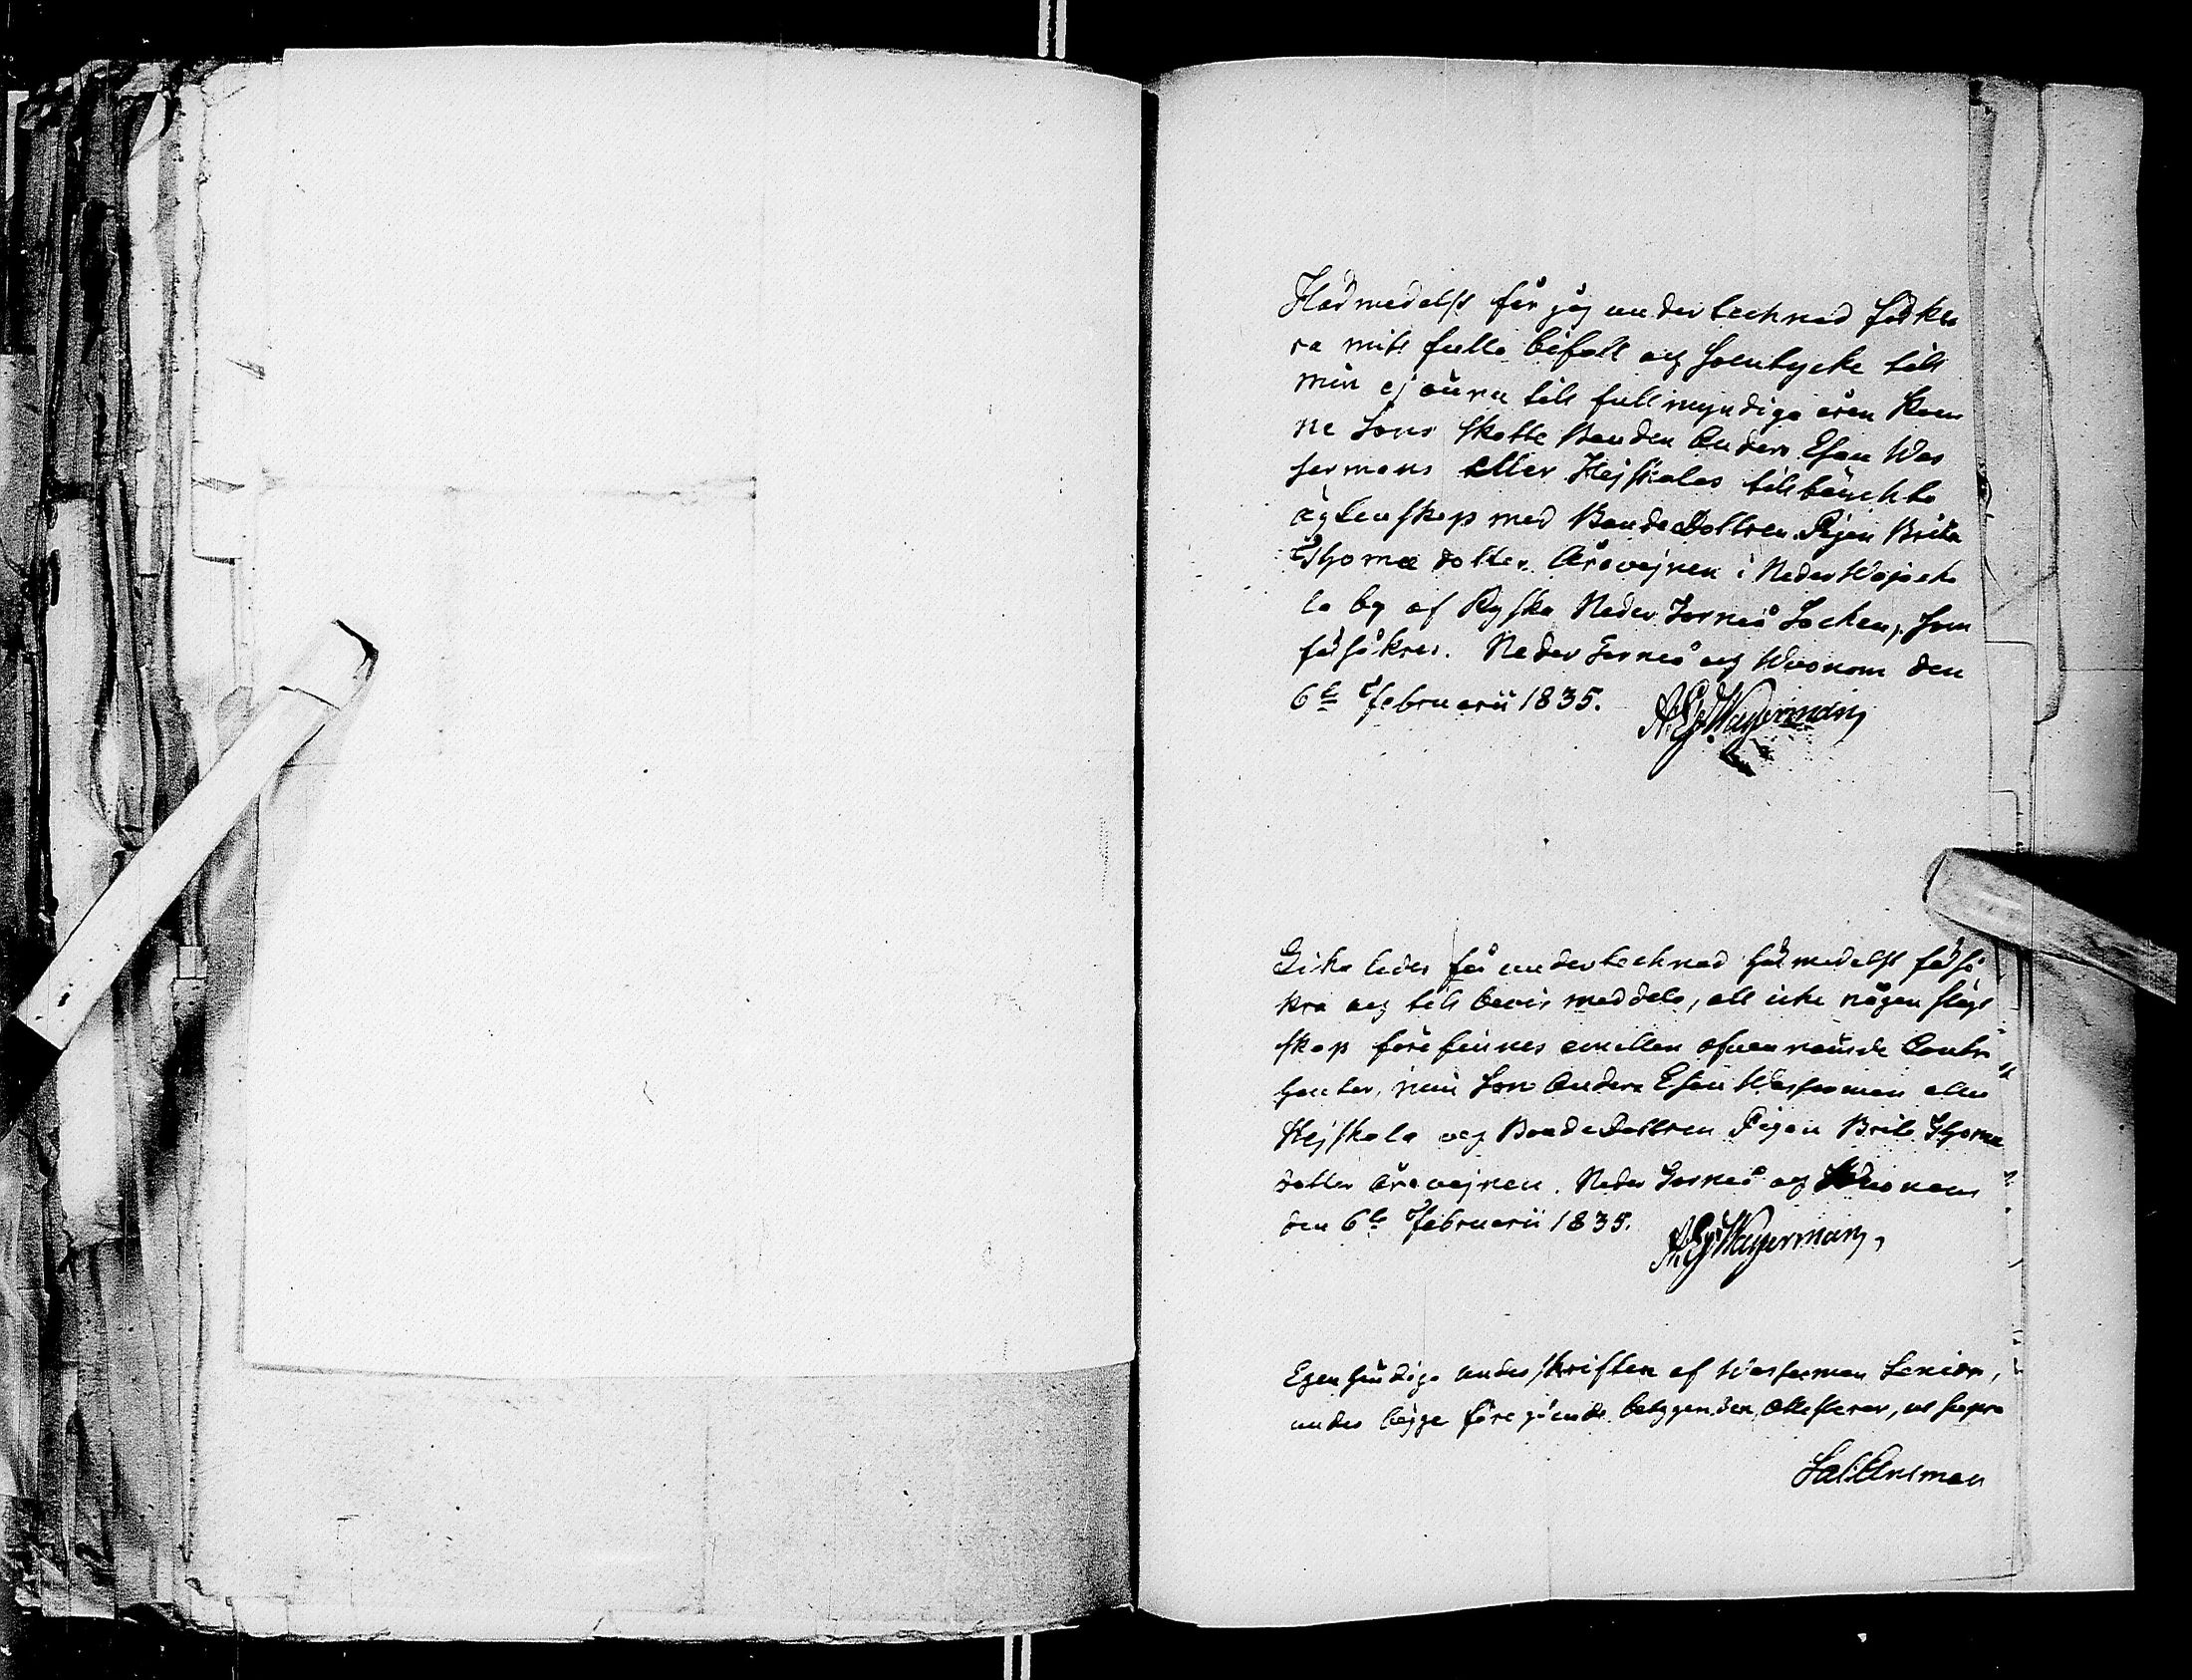 Härmedelst får jag undertecknad förkla
ra mitt fulla bifall och samtycke till
min ej ännu till fullmyndiga åren kom
ne Sons Skatte Bonden Anders Esan Was
sermans eller Hejskalas tillbärckta
ägtenskap med BondeDottren Pigan Brita
Thomædotter Äräwejnen i Neder Wojack
la by af Ryska Neder Torneå Socken, som
försäkras. Neder Torneå och Wuonom den
6te Februarii 1835. A. Es: Wasserman,
Lika ledes får undertecknad härmedelst försä
kra och till bevis meddela, att icke någon slägt
skap förefinnes emellan ofvannämnde Contra
henter, min Son Anders Esan Wasserman eller
Hejskala och BondeDottren Pigan Brita Thomæ
dotter Äräwejnen. Neder Torneå och Wuonom
den 6te Februarii 1835. A. Es: Wasserman,
Egenhändiga underskriften af Wasserman Senior,
under bägge föregående betygenden, attesterar, ut supra
Sal: Ansman